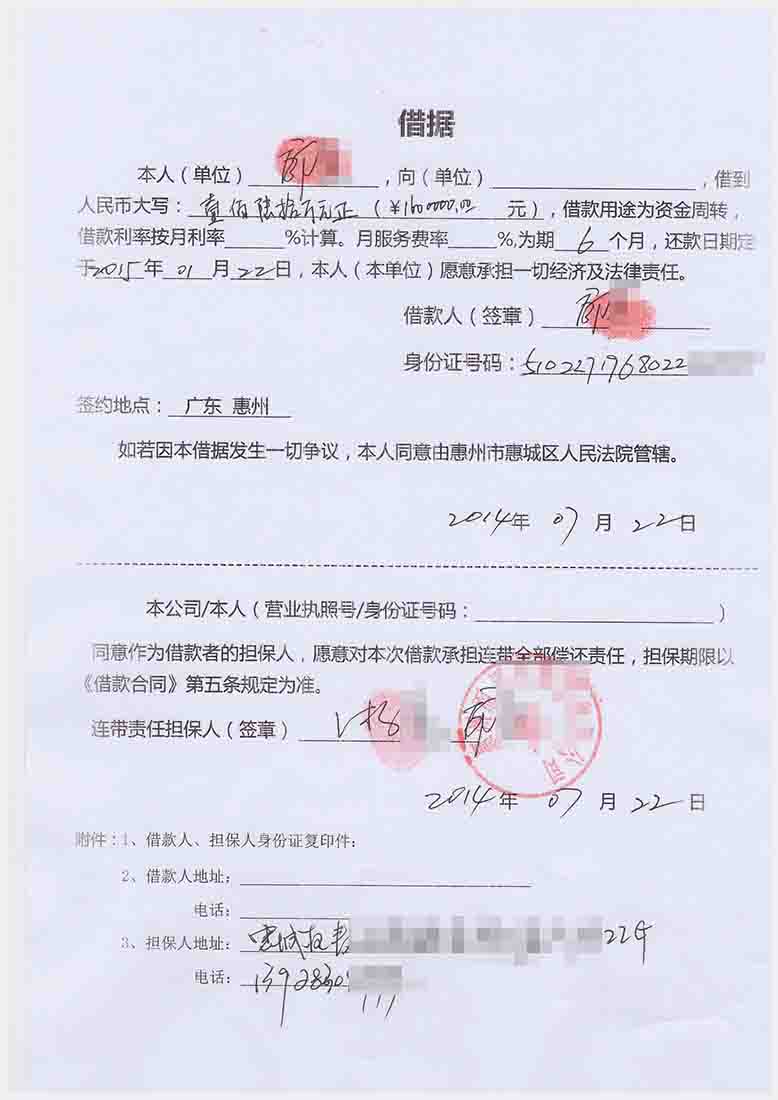 借据
本人（单位），向（单位），借到
人民币大写：壹佰陆拾万元正（¥1600000.00 元），借款用途为资金周转，
借款利率按月利率%计算。月服务费率%,为期6个月，还款日期定
于2015年01月22日，本人（本单位）愿意承担一切经济及法律责任。
借款人（签章）
身份证号码：5102271968022
签约地点：广东 惠州
如若因本借据发生一切争议，本人同意由惠州市惠城区人民法院管辖。
2014年07月22日
本公司/本人（营业执照号/身份证号码：）
同意作为借款者的担保人，愿意对本次借款承担连带全部偿还责任，担保期限以
《借款合同》第五条规定为准。
连带责任担保人（签章）
2014年07月22日
附件：1、借款人、担保人身份证复印件：
2、借款人地址：
电话：
3、担保人地址：惠城
电话：